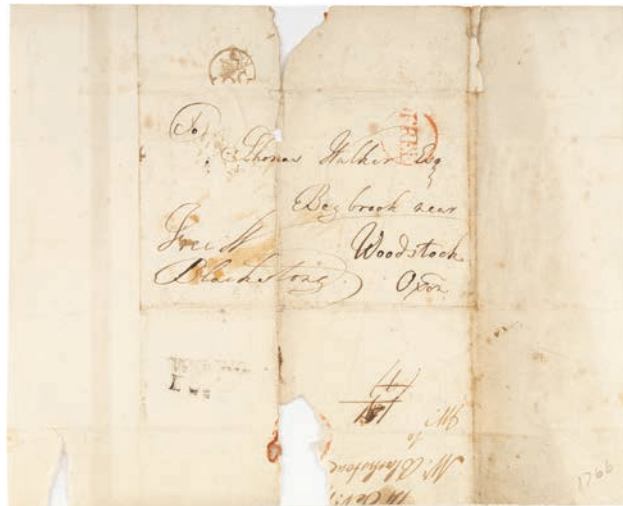 To
Thomas Walker Esq
Begbrook near
Woodstock
Oxon
Free W
Blackstone
FREE
Mr
to
Mr. Blackstone
14 Oct.
1766